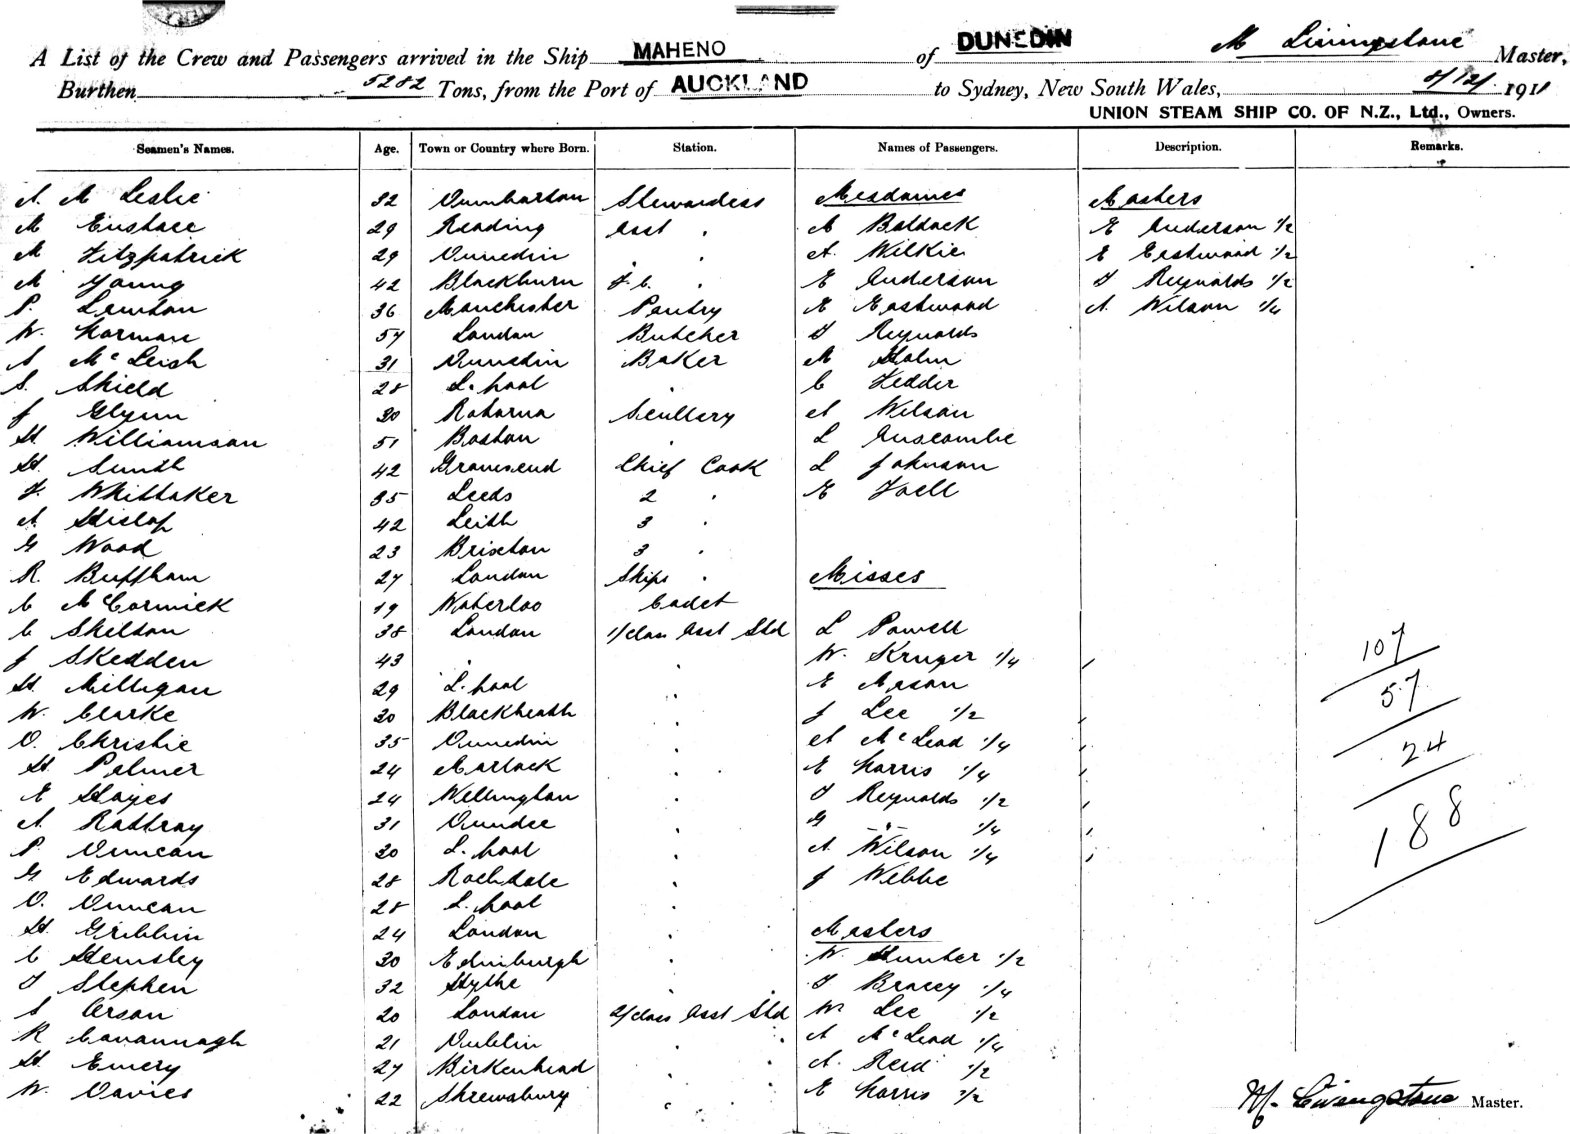 A List of the Crew and Passengers arrived in the Ship MAHENO of DUNEDIN M Livingstone Master,
Burthen 5282 Tons, from the Port of AUCKLAND to Sydney, New South Wales, 8/12/1911
UNION STEAM SHIP CO. OF N.Z., Ltd., Owners.
Seamen's Names. Age. Town or Country where Born. Station. Names of Passengers. Description. Remarks.
A. M Leslie 32 Dumbarton Stewardess Mesdames Masters
M Eustace 29 Reading Asst " A Baldock E Anderson 1/2
M Fitzpatrick 29 Dunedin " " A. Wilkie E Eastwood 1/2
M Young 42 Blackburn F.C. " E Anderson J Reynolds 1/2
P. Lewton 36 Manchester Pantry E Eastwood A. Wilson 1/4
W. Harman 57 London Butcher J Reynolds
A McLeish 31 Dunedin Baker M Holm
S. Shield 28 L.pool " C Fedder
J Glynn 30 Scullery A Wilson
H. Williamson 51 Boston " L Anscombe
H. Smith 42 Gravesend Chief Cook L Johnson
F. Whittaker 35 Leeds 2 " E Joell
A. Hislop 42 Leith 3 "
G Wood 23 Brixton 3 "
R. Buffham 27 London Ships " Misses
C McCormick 19 Waterloo Cadet
C Skelton 38 London 1/class Asst Std L Powell
J Skedden 43 " " W. Kruger 1/4 107
H. Milligan 29 L.pool " E Mason 57
W. Clarke 30 Blackheath " J Lee 1/2
D. Christie 35 Dunedin " A McLeod 1/4 24
H. Palmer 24 " E Harris 1/4
E Hayes 24 Wellington " J Reynolds 1/2 188
A. Rattray 31 Dundee " G -"- 1/4
P. Duncan 30 L.pool " A. Wilson 1/4
G Edwards 28 Rochdale " J Webbe
D. Duncan 28 L.pool "
H. Gribbin 24 London " Masters
C Hemsley 30 Edinburgh " W. Hunter 1/2
J Stephen 32 Hythe " J Bracey 1/4
S Orson 20 London 2/class Asst Std W Lee 1/2
R Cavannagh 21 Dublin " " A McLeod 1/4
H. Emery 27 Birkenhead " " A. Reid 1/2
W. Davies 22 Shrewsbury " " E Harris 1/2
M. Livingstone Master.